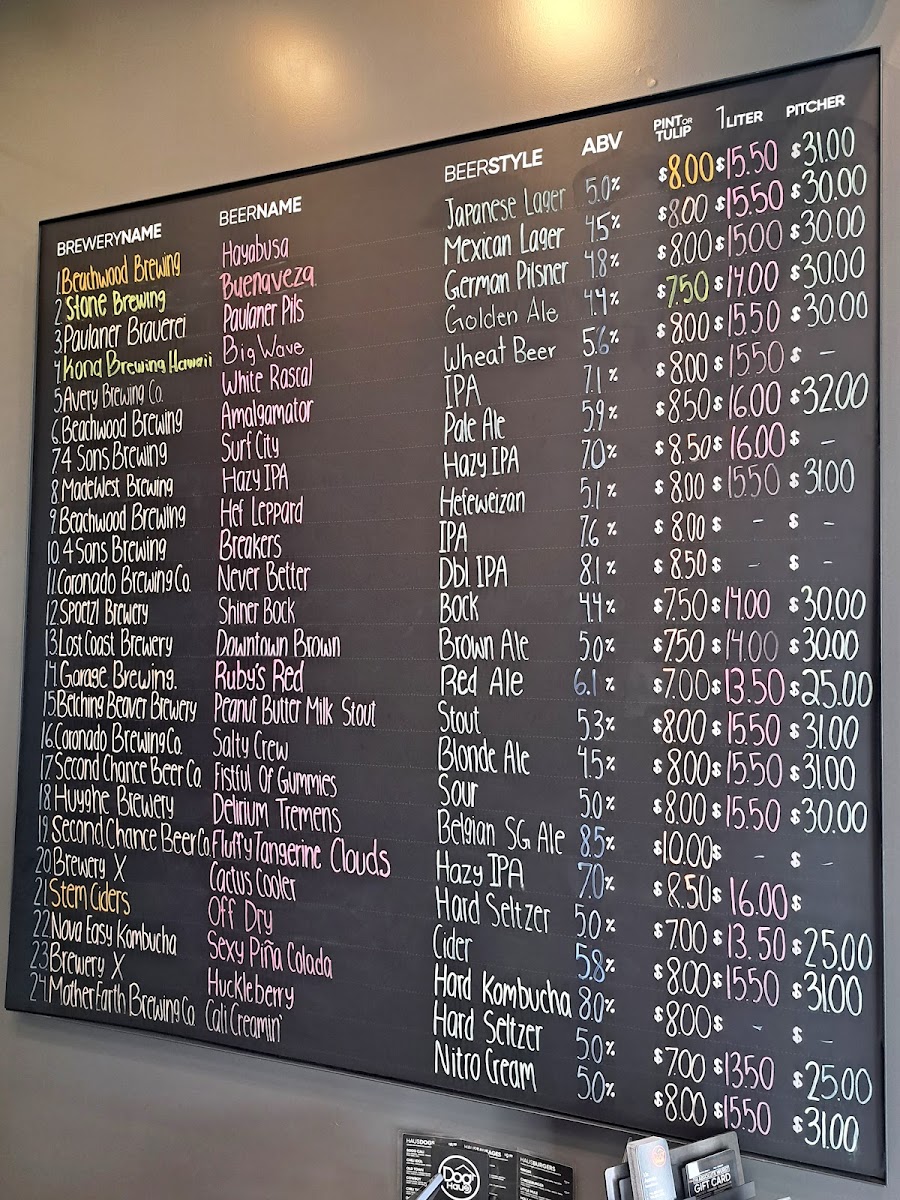 BREWERYNAME BEERNAME BEERSTYLE ABV PINT OR TULIP 1 LITER PITCHER
1. Beachwood Brewing Hayabusa Japanese Lager 5.0% $8.00 $15.50 $31.00
2 Stone Brewing Buenaveza Mexican Lager 4.5% $8.00 $15.50 $30.00
3. Paulaner Brauerei Paulaner Pils German Pilsner 4.8% $8.00 $15.00 $30.00
4. Kona Brewing Hawaii Big Wave Golden Ale 4.4% $7.50 $14.00 $30.00
5. Avery Brewing Co. White Rascal Wheat Beer 5.6% $8.00 $15.50 $30.00
6. Beachwood Brewing Amalgamator IPA 7.1% $8.00 $15.50 $ -
7. 4 Sons Brewing Surf City Pale Ale 5.9% $8.50 $16.00 $32.00
8 MadeWest Brewing Hazy IPA Hazy IPA 7.0% $8.50 $16.00 $ -
9. Beachwood Brewing Hef Leppard Hefeweizan 5.1% $8.00 $15.50 $31.00
10. 4 Sons Brewing Breakers IPA 7.6% $8.00 $ - $ -
11. Coronado Brewing Co. Never Better Dbl. IPA 8.1% $8.50 $ - $ -
12. Spoetzl Brewery Shiner Bock Bock 4.4% $7.50 $14.00 $30.00
13. Lost Coast Brewery Downtown Brown Brown Ale 5.0% $7.50 $14.00 $30.00
14. Garage Brewing. Ruby's Red Red Ale 6.1% $7.00 $13.50 $25.00
15. Belching Beaver Brewery Peanut Butter Milk Stout Stout 5.3% $8.00 $15.50 $31.00
16. Coronado Brewing Co. Salty Crew Blonde Ale 4.5% $8.00 $15.50 $31.00
17. Second Chance Beer Co. Fistful Of Gummies Sour 5.0% $8.00 $15.50 $30.00
18. Huyghe Brewery Delirium Tremens Belgian SG Ale 8.5% $10.00 $ - $ -
19. Second Chance Beer Co. Fluffy Tangerine Clouds Hazy IPA 7.0% $8.50 $16.00 $
20. Brewery X Cactus Cooler Hard Seltzer 5.0% $7.00 $13.50 $25.00
21 Stem Ciders Off Dry Cider 5.8% $8.00 $15.50 $31.00
22. Nova Easy Kombucha Sexy Piña Colada Hard Kombucha 8.0% $8.00 $ - $ -
23. Brewery X Huckleberry Hard Seltzer 5.0% $7.00 $13.50 $25.00
24. Mother Earth Brewing Co. Cali Creamin' Nitro Cream 5.0% $8.00 $15.50 $31.00
HAUSDOGS HAUSBURGERS
Dog Haus
GIFT CARD